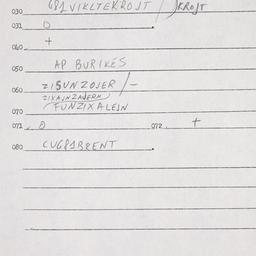 030 681VIKLTEKROJT / KROJT
031 0
040 +
050 AP BURIKES
060 ZISUNZOJER/-
ZIXAJNZAJERN/
070 FUNZIXALEJN
071 0 072. +
080 CUGP1BRENT